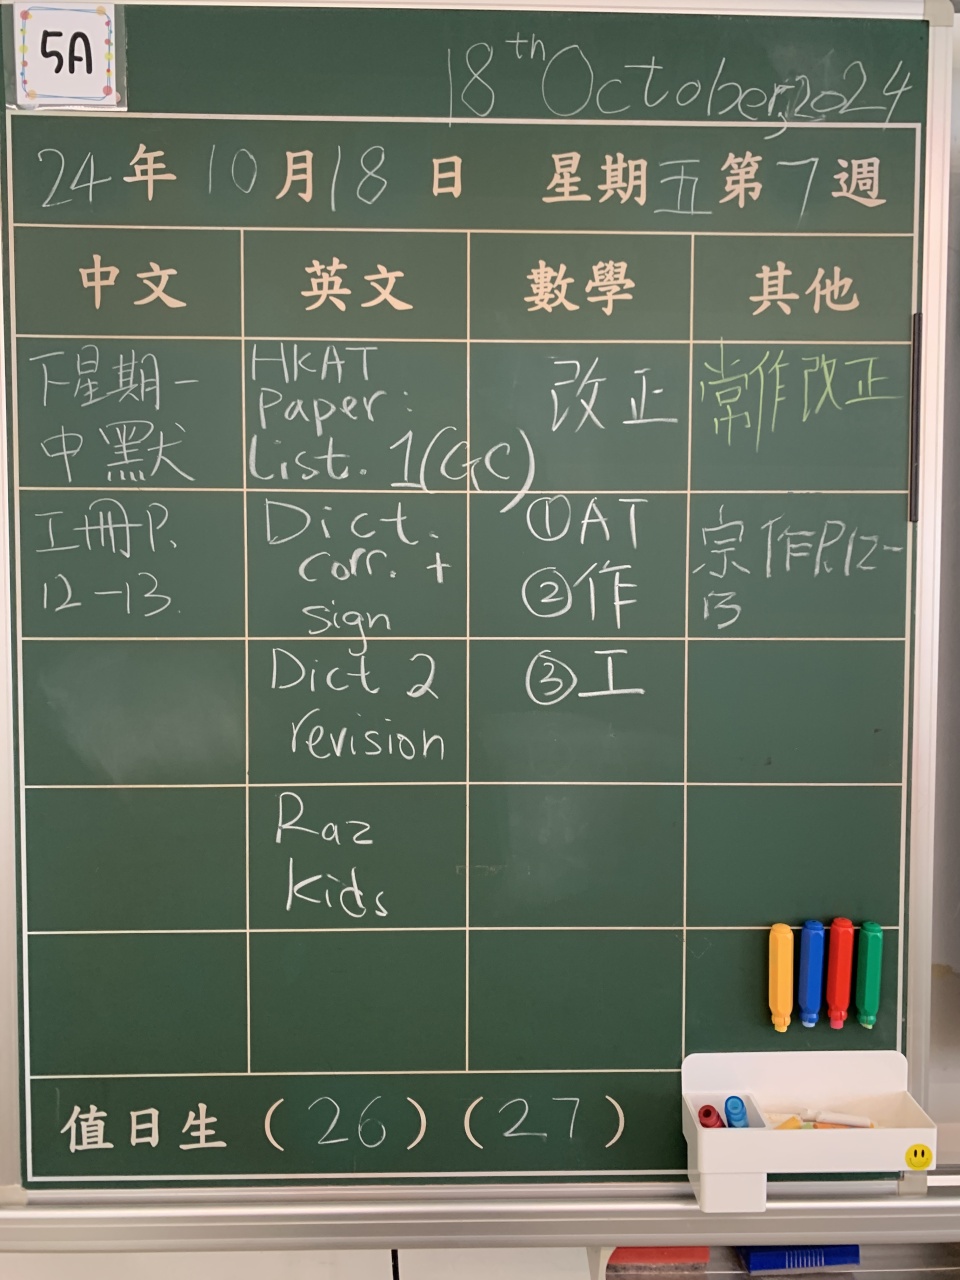 5A
18th October, 2024
24年10月18日 星期五第7週
中文 英文 數學 其他
下星期一
中默
HKAT
Paper:
List. 1(GC)
改正
常作改正
工冊P.
12-13.
Dict.
corr. +
sign
①AT
②作
宗作P.12-
13
Dict 2
revision
③工
Raz
Kids
值日生(26)(27)